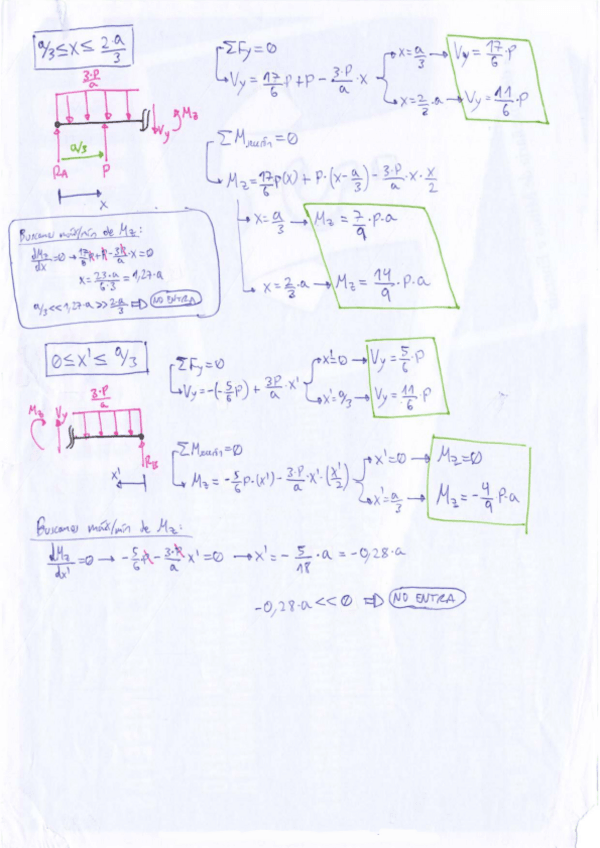 a/3 ≤ x ≤ 2·a/3
ΣFy=0
Vy = 17/6 P + P - 3·P/a · x
x = a/3 → Vy = 17/6 · P
x = 2/3 · a → Vy = 11/6 · P
3·P/a
Vy
Mz
a/3
RA
P
x
ΣMsección=0
Mz = 17/6 P(x) + P·(x - a/3) - 3·P/a · x · x/2
x = a/3 → Mz = 7/9 · P·a
x = 2/3 · a → Mz = 14/9 · P·a
Buscamos máx/mín de Mz:
dMz/dx = 0 → 17/6 P + P - 3P/a · x = 0
x = 23·a/6·3 = 1,27·a
a/3 << 1,27·a >> 2·a/3 ⇒ NO ENTRA
0 ≤ x' ≤ a/3
ΣFy=0
Vy = -(-5/6 P) + 3P/a · x'
x'=0 → Vy = 5/6 · P
x' = a/3 → Vy = 11/6 · P
3·P/a
Mz
Vy
RB
x'
ΣMsección=0
Mz = -5/6 P·(x') - 3·P/a · x' · (x'/2)
x'=0 → Mz=0
x' = a/3 → Mz = -4/9 P·a
Buscamos máx/mín de Mz:
dMz/dx' = 0 → -5/6 P - 3·P/a x' = 0 → x' = -5/18 · a = -0,28·a
-0,28·a << 0 ⇒ NO ENTRA